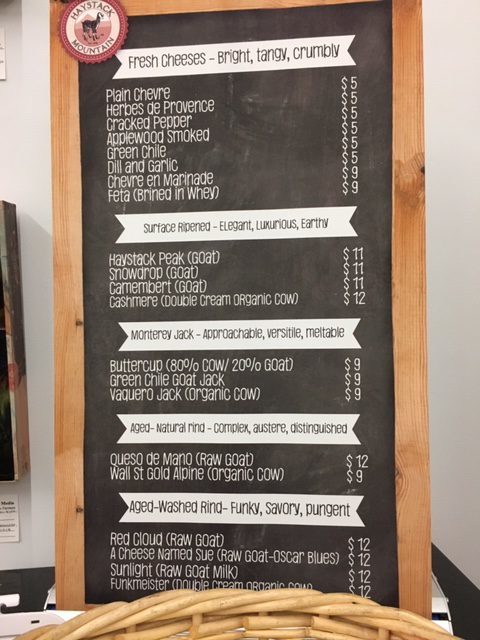 HAYSTACK MOUNTAIN
Fresh Cheeses - Bright, tangy, crumbly
Plain Chevre $5
Herbes de Provence $5
Cracked Pepper $5
Applewood Smoked $5
Green Chile $5
Dill and Garlic $5
Chevre en Marinade $9
Feta (Brined in Whey) $9
Surface Ripened - Elegant, Luxurious, Earthy
Haystack Peak (Goat) $11
Snowdrop (Goat) $11
Camembert (Goat) $11
Cashmere (Double Cream Organic Cow) $12
Monterey Jack - Approachable, versitile, meltable
Buttercup (80% Cow/ 20% Goat) $9
Green Chile Goat Jack $9
Vaquero Jack (Organic Cow) $9
Aged- Natural rind - Complex, austere, distinguished
Queso de Mano (Raw Goat) $12
Wall St Gold Alpine (Organic Cow) $9
Aged-Washed Rind- Funky, Savory, pungent
Red Cloud (Raw Goat) $12
A Cheese Named Sue (Raw Goat-Oscar Blues) $12
Sunlight (Raw Goat Milk) $12
Funkmeister (Double Cream Organic Cow) $12
Media